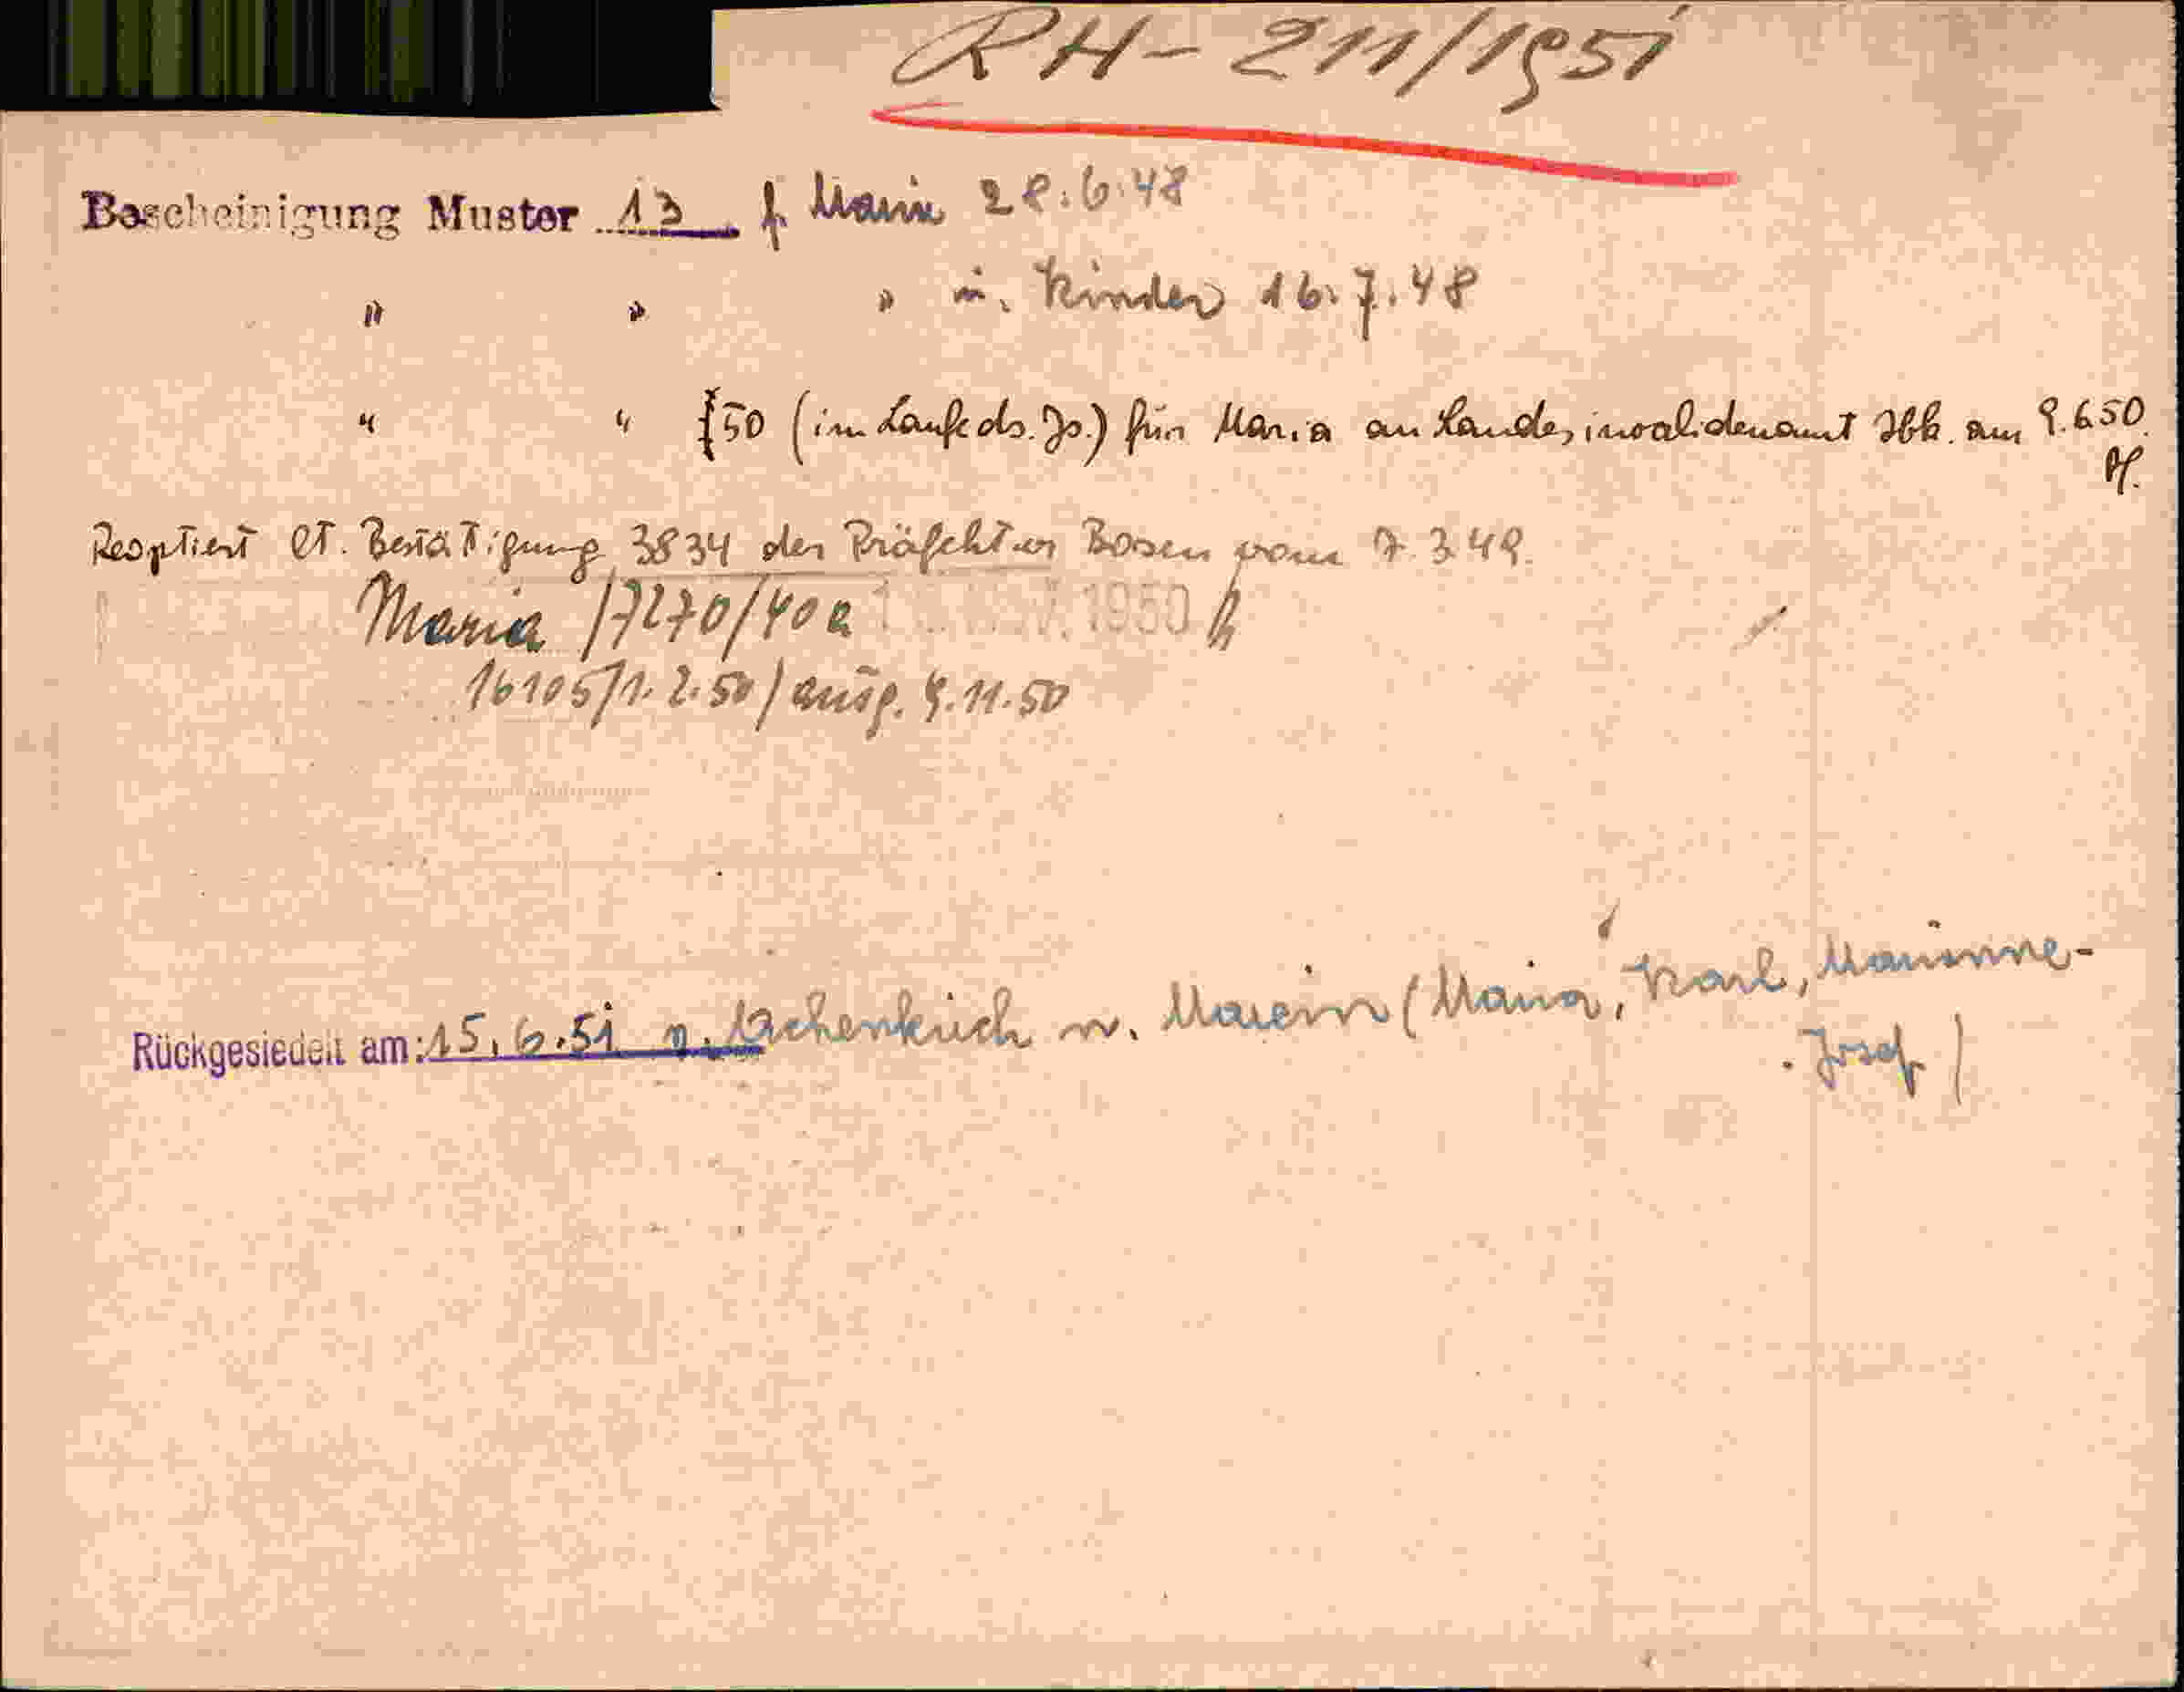 RH - 211/1951
Bescheinigung Muster 13 f. Maria 28.6.48
" " " u. Kinder 16.7.48
" " f 50 (im Laufe ds. Js.) für Maria an Landesinvalidenamt Ibk. am 9.6.50.
Reoptiert lt. Bestätigung 3834 der Präfektur Bozen vom 7.3.49.
Maria 17270/40a 1950
16105/1.2.50/ausg. 9.11.50
Rückgesiedelt am: 15.6.51 v. Achenkirch n. Marein (Maria, Karl, Marianne-
Josef)